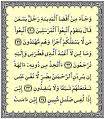 وَجَاءَ مِنْ أَقْصَا الْمَدِينَةِ رَجُلٌ يَسْعَىٰ
قَالَ يَا قَوْمِ اتَّبِعُوا الْمُرْسَلِينَ ﴿٢٠﴾ اتَّبِعُوا
مَن لَّا يَسْأَلُكُمْ أَجْرًا وَهُم مُّهْتَدُونَ ﴿٢١﴾
وَمَا لِيَ لَا أَعْبُدُ الَّذِي فَطَرَنِي وَإِلَيْهِ
تُرْجَعُونَ ﴿٢٢﴾ أَأَتَّخِذُ مِن دُونِهِ آلِهَةً
إِن يُرِدْنِ الرَّحْمَٰنُ بِضُرٍّ لَّا تُغْنِ عَنِّي
شَفَاعَتُهُمْ شَيْئًا وَلَا يُنقِذُونِ ﴿٢٣﴾
إِنِّي إِذًا لَّفِي ضَلَالٍ مُّبِينٍ ﴿٢٤﴾ إِنِّي